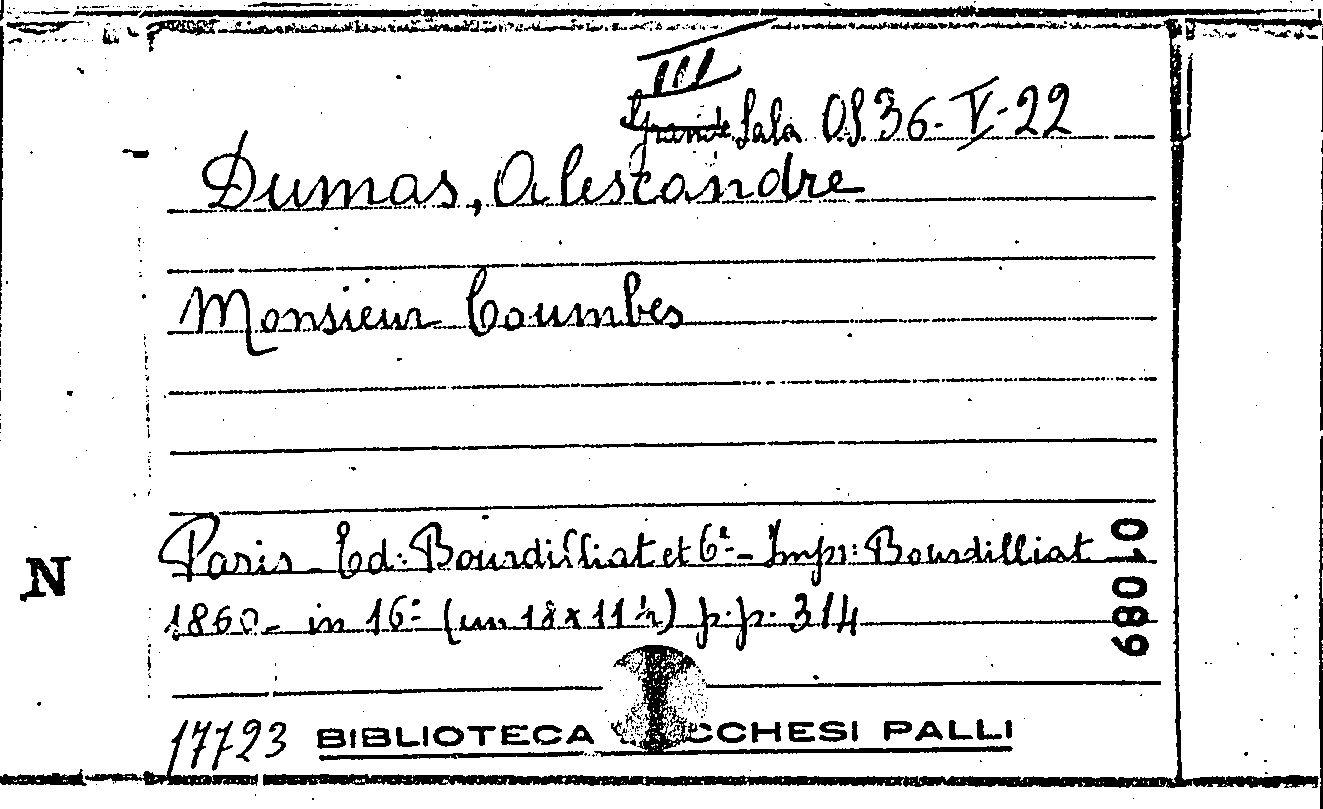 III
Grande Sala O.S. 36-V-22
Dumas, Alescandre
Monsieur Coumbes
Paris - Ed: Bourdilliat et Cᵉ - Impr: Bourdilliat
1860 - in 16º (cm 18x11½) p.p. 314
N
01089
17723 BIBLIOTECA CCHESI PALLI